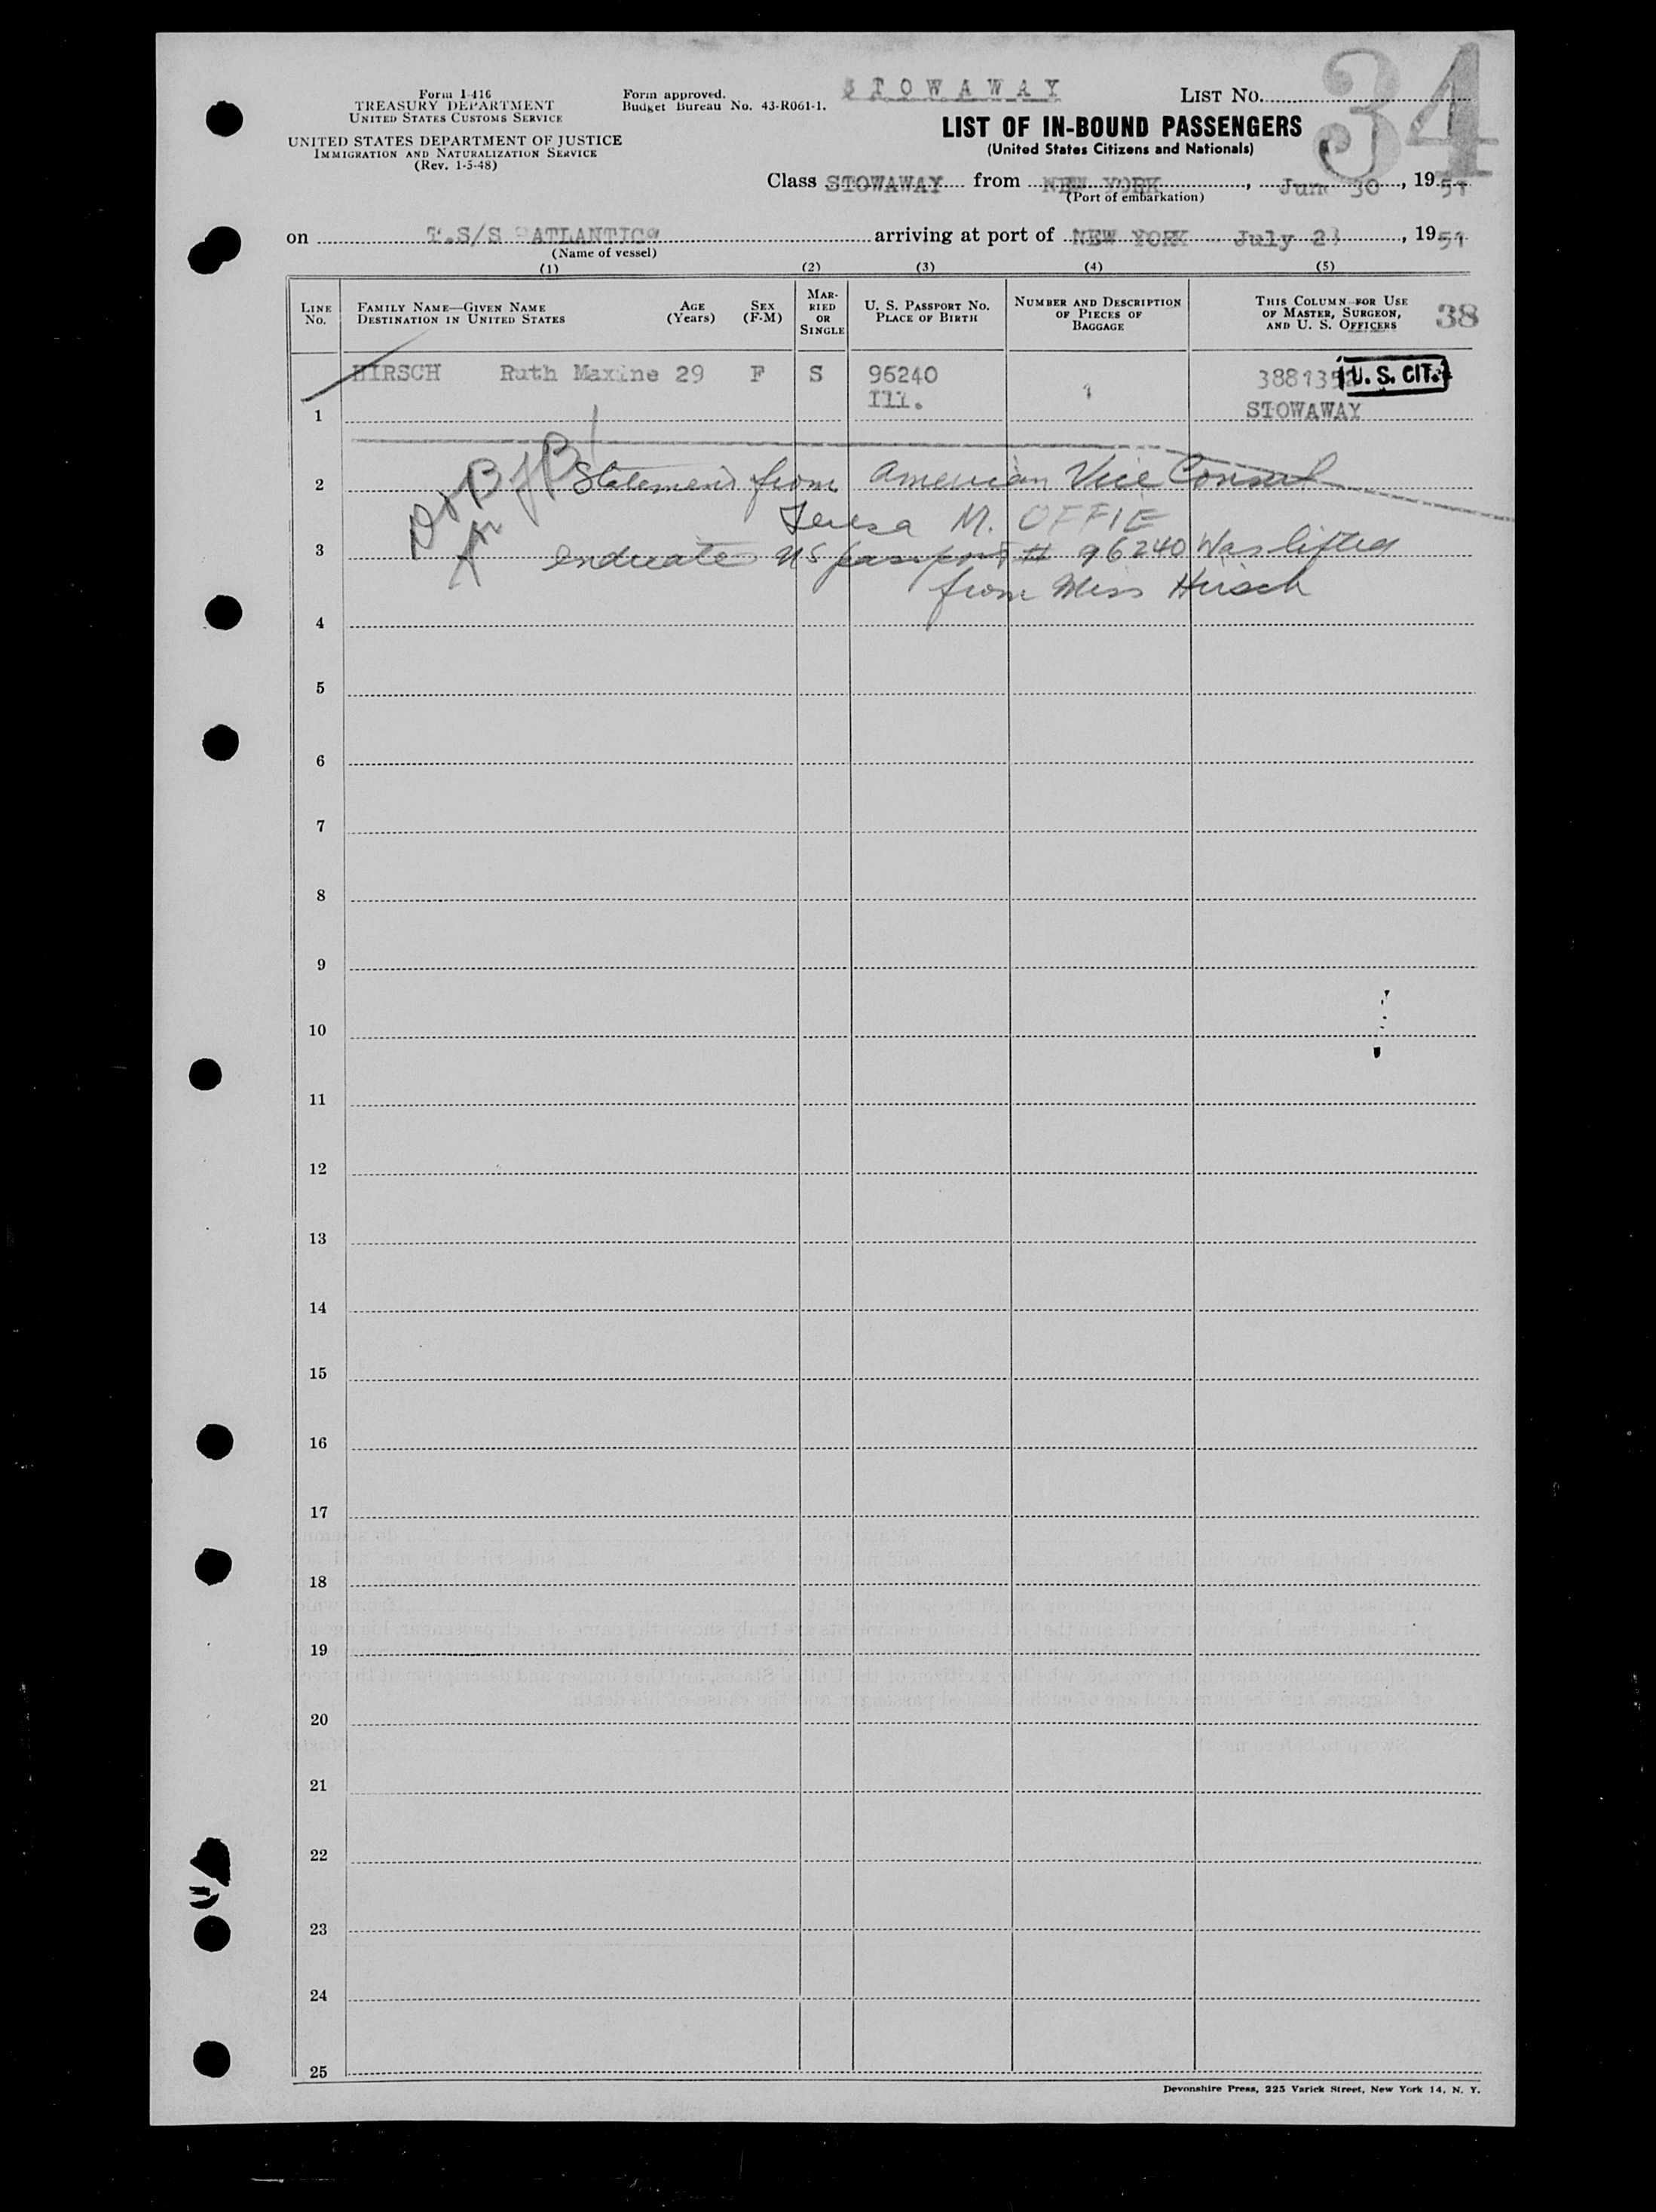 34
STOWAWAY
Form I-416
TREASURY DEPARTMENT
UNITED STATES CUSTOMS SERVICE
UNITED STATES DEPARTMENT OF JUSTICE
IMMIGRATION AND NATURALIZATION SERVICE
(Rev. 1-5-48)
Form approved.
Budget Bureau No. 43-R061-1.
LIST NO.
LIST OF IN-BOUND PASSENGERS
(United States Citizens and Nationals)
Class STOWAWAY from NEW YORK, Jun 30, 1951
(Port of embarkation)
on T.S/S "ATLANTIC" arriving at port of NEW YORK - July 23, 1951
(Name of vessel)
(1) (2) (3) (4) (5)
LINE NO.
FAMILY NAME—GIVEN NAME
DESTINATION IN UNITED STATES
AGE (Years)
SEX (F-M)
MARRIED OR SINGLE
U. S. PASSPORT NO.
PLACE OF BIRTH
NUMBER AND DESCRIPTION OF PIECES OF BAGGAGE
THIS COLUMN FOR USE OF MASTER, SURGEON, AND U. S. OFFICERS
38
HIRSCH Ruth Maxine 29 F S 96240 1 U. S. CIT.
Ill.
1 STOWAWAY
2 Statement from American Vice Consul
Teresa M. OFFIE
3 endicates US passport # 96240 Was lifted
from Miss Hirsch
4
5
6
7
8
9
10
11
12
13
14
15
16
17
18
19
20
21
22
23
24
25
Devonshire Press, 225 Varick Street, New York 14, N. Y.